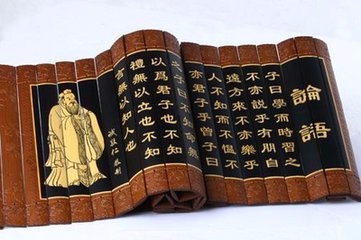 論語
子曰學而時習之
不亦説乎有朋自
遠方來不亦樂乎
人不知而不愠不
亦君子乎曾子曰
以爲君子也不知
禮無以立也不知
言無以知人也